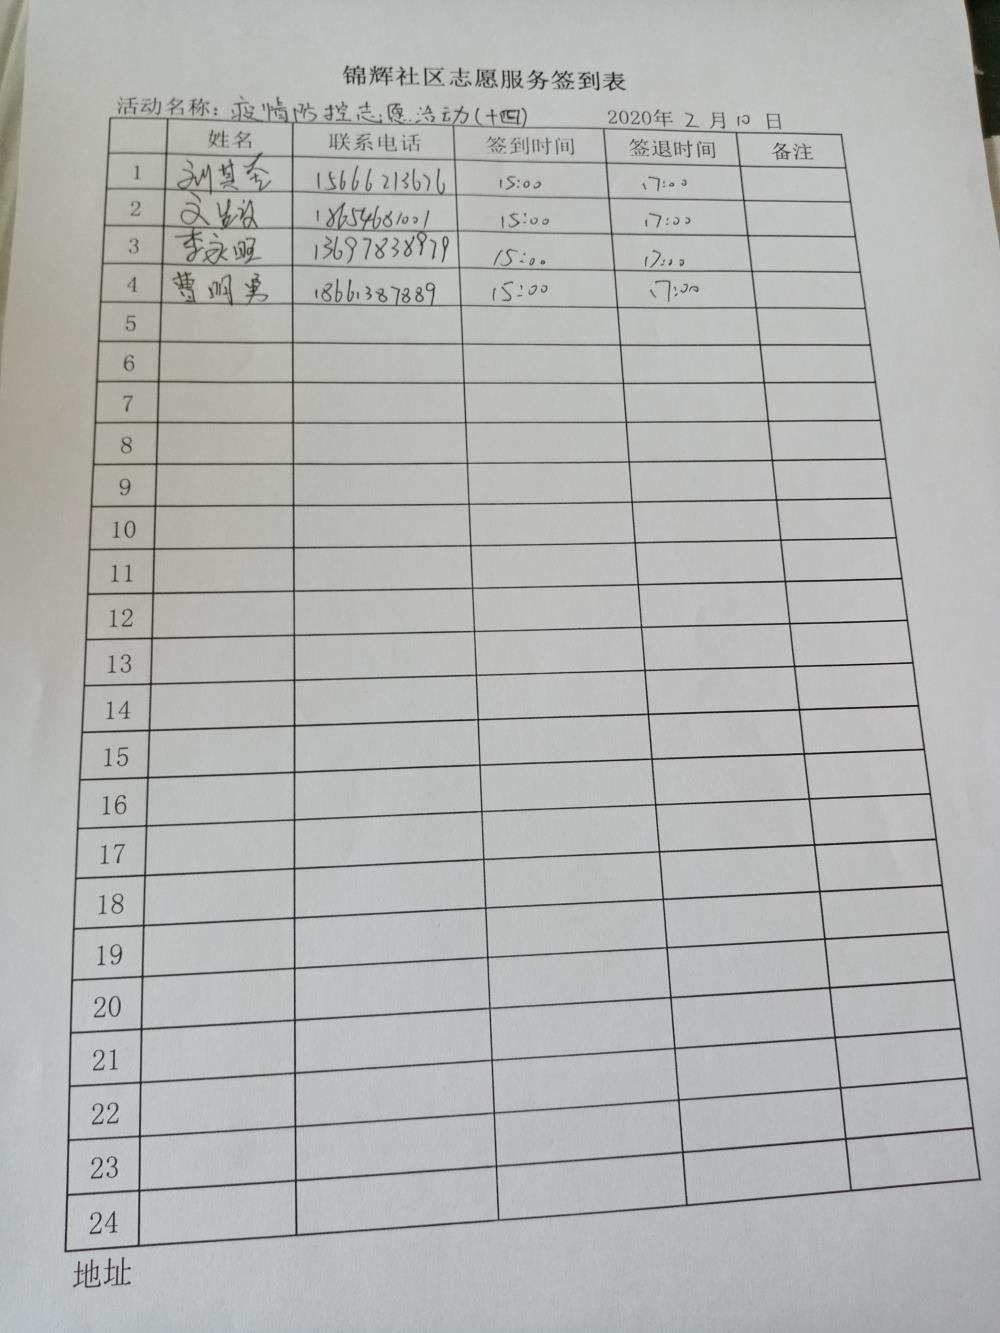 锦辉社区志愿服务签到表
活动名称：疫情防控志愿活动(十四) 2020年 2 月 10 日
姓名 联系电话 签到时间 签退时间 备注
1 刘其 15666213676 15:00 17:00
2 18654681001 15:00 17:00
3 李永旺 13697838979 15:00 17:00
4 曹明勇 18661387889 15:00 17:00
5
6
7
8
9
10
11
12
13
14
15
16
17
18
19
20
21
22
23
24
地址